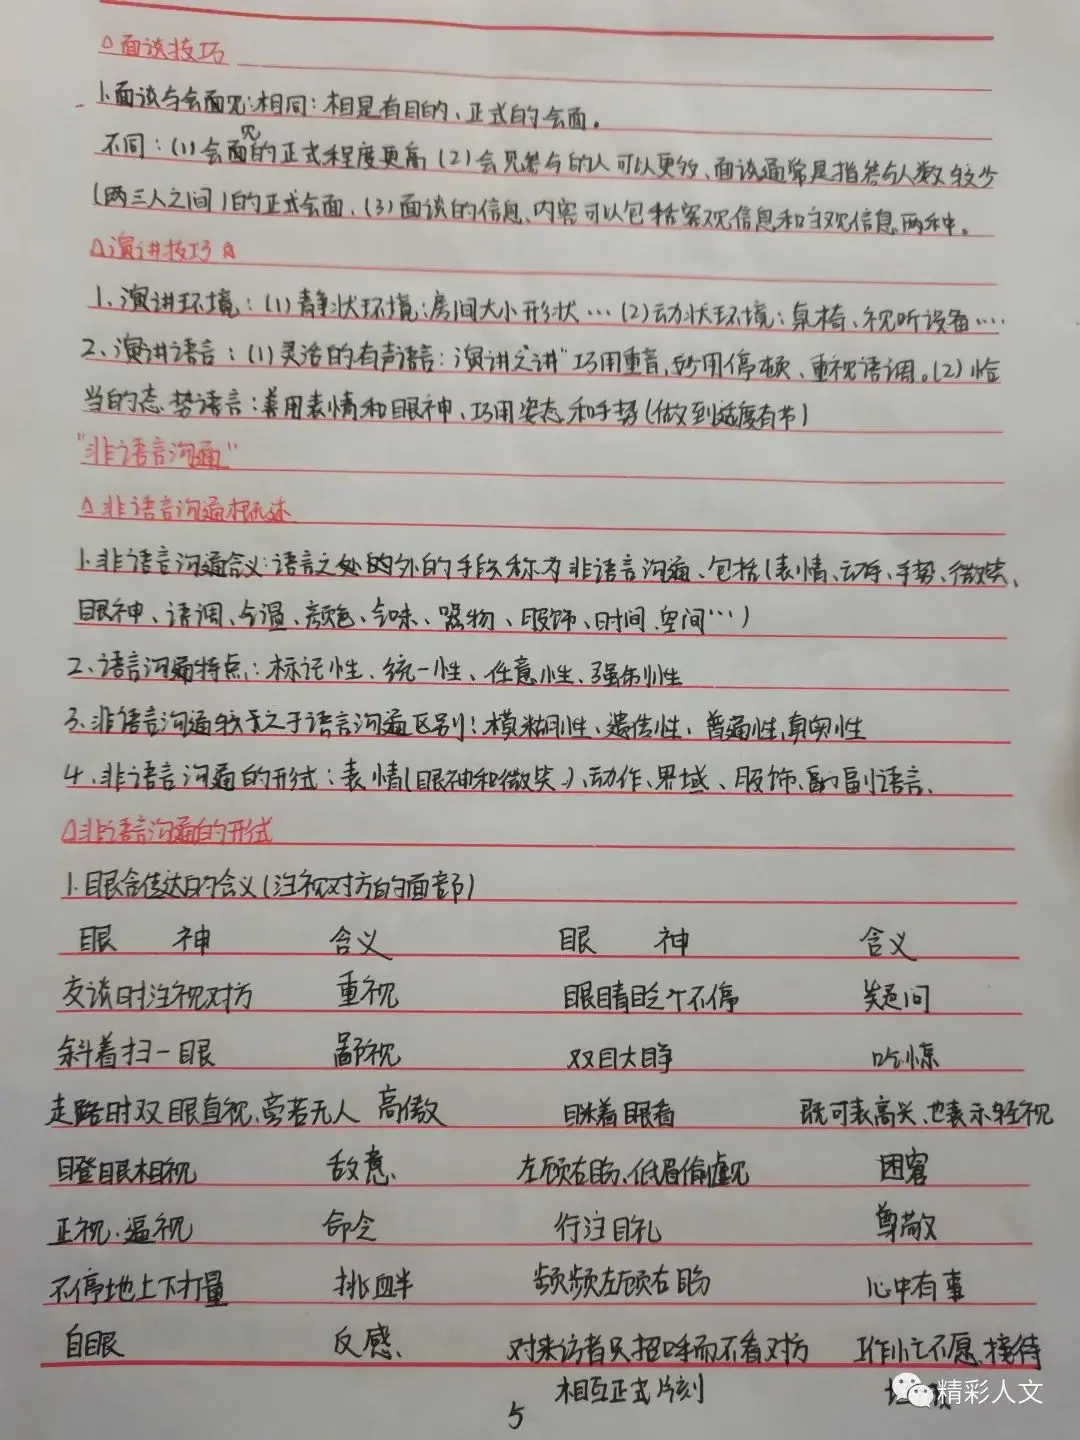 △面谈技巧
1.面谈与会面见:相同:相是有目的、正式的会面。
不同:(1)会面见的正式程度更高(2)会见参与的人可以更多、面谈通常是指参与人数较少
(两三人之间)的正式会面、(3)面谈的信息、内容可以包括客观信息和主观信息两种。
△演讲技巧☆
1、演讲环境:(1)静状环境:房间大小形状…(2)动状环境:桌椅、视听设备…
2、演讲语言:(1)灵活的有声语言:演讲之"讲"巧用重音,妙用停顿、重视语调。(2)恰
当的态势语言:善用表情和眼神、巧用姿态和手势(做到适度有节)
"非语言沟通"
△非语言沟通概述
1.非语言沟通含义:语言之处的外的手段称为非语言沟通、包括(表情、动作、手势、微笑、
眼神、语调、气温、颜色、气味、器物、服饰、时间、空间…)
2、语言沟通特点:标记性、统一性、任意性、强制性
3、非语言沟通较于语言沟通区别:模糊性、遗传性、普遍性,真实性
4、非语言沟通的形式:表情(眼神和微笑)、动作、界域、服饰、副语言、
△非语言沟通的形式
1.眼含传达的含义(注视对方的面部)
眼 神 含义 眼 神 含义
交谈时注视对方 重视 眼睛眨个不停 疑问
斜着扫一眼 鄙视 双目大睁 吃惊
走路时双眼直视、旁若无人 高傲 眯着眼看 既可表高兴、也表示轻视
瞪眼相视 敌意、 左顾右盼、低眉偷觑 困窘
正视、逼视 命令 行注目礼 尊敬
不停地上下打量 挑衅 频频左顾右盼 心中有事
白眼 反感、 对来访者只招呼而不看对方 工作忙不愿接待
相互正式片刻
5
精彩人文